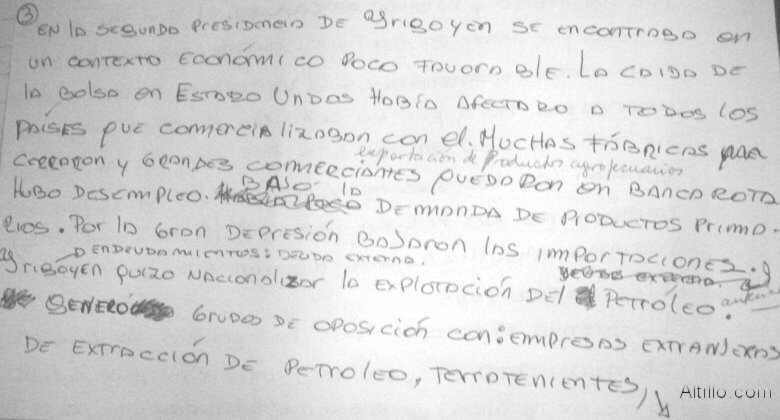 ③
EN la SEGUNDA PRESIDENCIA DE Yrigoyen SE encontraba en
un contexto Económico Poco FAVORABLE. La CAIDA DE
la Bolsa en ESTADO UNIDOS HABÍA AFECTADO A TODOS LOS
PAÍSES QUE COMERCIALIZABAN con el. MUCHAS FÁBRICAS
exportación de Productos agropecuarios
CERRARON y GRANDES COMERCIANTES QUEDARON en BANCAROTA
HUBO DESEMPLEO. BAJO la DEMANDA DE PRODUCTOS PRIMA-
RIOS. Por la Gran DEPRESIÓN BAJARON LAS IMPORTACIONES.
ENDEUDAMIENTOS: DEUDA EXTERNA.
Yrigoyen QUIZO NACIONALIZAR la EXPLOTACIÓN DEL PETRÓLEO.
GENERÓ GRUPOS DE OPOSICIÓN CON: EMPRESAS EXTRANJERAS
DE EXTRACCIÓN DE PETROLEO, TERRATENIENTES,
Altillo.com